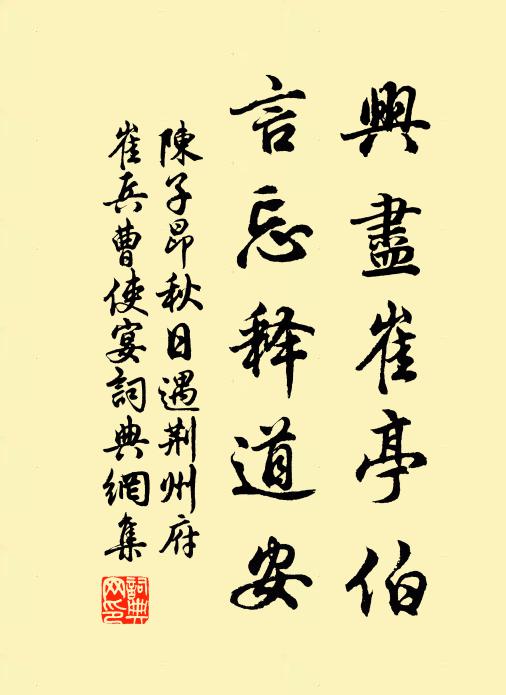 興盡崔亭伯
言忘释道安
陳子昂秋日遇荆州府
崔兵曹使宴詞典網集
詞典网印